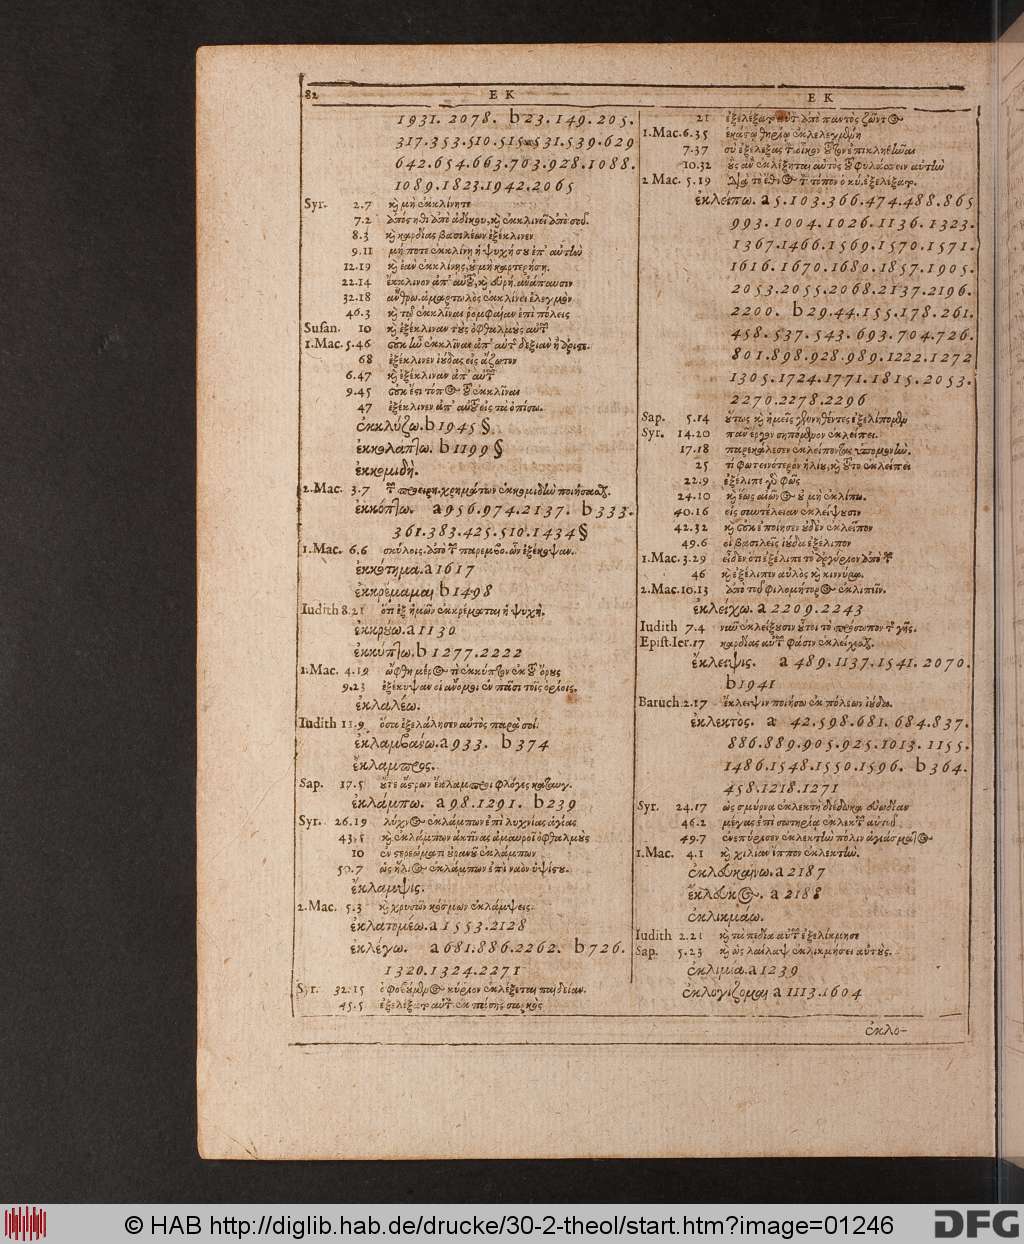 82
E K
E K
1931. 2078. b 23. 149. 205.
317. 353. 510. 515. 531. 539. 629
642. 654. 663. 703. 928. 1088.
1089. 1823. 1942. 2065
Syr. 2.7 κỳ μὴ ἐκκλίνητε
7.2 ἀπόςηθι ἀπὸ ἀδίκου, κỳ ἐκκλινεῖ ἀπὸ σοῦ.
8.3 κỳ καρδίας βασιλέων ἐξέκλινεν
9.11 μήποτε ἐκκλίνη ἡ ψυχή σου ἐπ' αὐτὴν
12.19 κỳ ἐὰν ἐκκλίνης, οὐ μὴ καρτερήση.
22.14 ἔκκλινον ἀπ' αὐτοῦ, κỳ εὑρή. ἀνάπαυσιν
32.18 ἄνθρω. ἁμαρτωλὸς ἐκκλίνει ἐλεγμὸν
46.3 κỳ τῷ ἐκκλῖναι ῥομφαίαν ἐπὶ πόλεις
Susan. 10 κỳ ἐξέκλιναν τοὺς ὀφθαλμοὺς αὐτῶν
1.Mac. 5.46 οὐκ ἦν ἐκκλῖναι ἀπ' αὐτῆς δεξιὰν ἢ ἀριστε.
68 ἐξέκλινεν ἰούδας εἰς ἄζωτον
6.47 κỳ ἐξέκλιναν ἀπ' αὐτῶν
9.45 οὐκ ἔςι τόπος τοῦ ἐκκλῖναι
47 ἐξέκλινεν ἀπ' αὐτοῦ εἰς τὰ ὀπίσω.
ἐκκλύζω. b 1945 §
ἐκκολαπτω. b 1199 §
ἐκκομιδή.
2.Mac. 3.7 χρημάτων ἐκκομιδὴν ποιήσασθαι.
ἐκκόπτω. a 956. 974. 2137. b 333.
361. 383. 425. 510. 1434 §
1.Mac. 6.6 σκύλοις. ἀπὸ τῶν παρεμβο. ὧν ἐξέκοψαν.
ἐκκότημα. a 1617
ἐκκρέμαμαι b 1498
Iudith 8.21 ὅτι ἐξ ἡμῶν ἐκκρέμαται ἡ ψυχὴ.
ἐκκρούω. a 1130
ἐκκύπτω. b 1277. 2222
1.Mac. 4.19 ὤφθη μέρος τὶ ἐκκύπτον ἐκ τοῦ ὄρους
9.23 ἐξέκυψαν οἱ ἄνομοι ἐν πᾶσι τοῖς ὁρίοις.
ἐκλαλέω.
Iudith 11.9 ὅσα ἐξελάλησεν αὐτὸς παρὰ σοί.
ἐκλαμβάνω. a 933. b 374
ἔκλαμπρος.
Sap. 17.5 οὔτε ἄςρων ἔκλαμπροι φλόγες καταυγ.
ἐκλάμπω. a 98. 1291. b 239
Syr. 26.19 λύχνος ἐκλάμπων ἐπὶ λυχνίας ἁγίας
43.5 κỳ ἐκλάμπων ἀκτῖνας ἀμαυροῖ ὀφθαλμοὺς
10 ἐν ςερεώματι οὐρανοῦ ἐκλάμπων
50.7 ὡς ἥλιος ἐκλάμπων ἐπὶ ναὸν ὑψίςου.
ἔκλαμψις.
2.Mac. 5.3 κỳ χρυσῶν κόσμων ἐκλάμψεις.
ἐκλατομέω. a 1553. 2128
ἐκλέγω. a 681. 886. 2262. b 726.
1320. 1324. 2271
Syr. 32.15 ὁ φοβούμενος κύριον ἐκλέξεται παιδείαν.
45.5 ἐξελέξατο αὐτὸν ἐκ πάσης σαρκὸς
21 ἐξελέξατο αὐτὸν ἀπὸ παντὸς ζῶντος
1.Mac. 6.35 ἑκάςῳ θηρίῳ ἐκλελεγμένη
7.37 σὺ ἐξελέξας τὸν οἶκον τοῦτον ἐπικληθῆναι
10.32 οὓς ἂν ἐκλέξηται αὐτὸς τοῦ φυλάσσειν αὐτὴν
2.Mac. 5.19 διὰ τὸ ἔθνος τὸν τόπον ὁ κύ. ἐξελέξατο.
ἐκλείπω. a 5. 103. 366. 474. 488. 865
993. 1004. 1026. 1136. 1323.
1367. 1466. 1569. 1570. 1571.
1616. 1670. 1680. 1857. 1905.
2053. 2055. 2068. 2137. 2196.
2200. b 29. 44. 155. 178. 261.
458. 537. 543. 693. 704. 726.
801. 898. 928. 989. 1222. 1272
1305. 1724. 1771. 1815. 2053.
2270. 2278. 2296
Sap. 5.14 οὕτως κỳ ἡμεῖς γεννηθέντες ἐξελίπομεν
Syr. 14.20 πᾶν ἔργον σηπόμενον ἐκλείπει.
17.18 παρεκάλεσεν ἐκλείποντας ὑπομονήν.
25 τί φωτεινότερον ἡλίου, κỳ τοῦτο ἐκλείπει
22.9 ἐξέλιπε γὰρ φῶς
24.10 κỳ ἕως αἰῶνος οὐ μὴ ἐκλίπω.
40.16 εἰς συντέλειαν ἐκλείψουσιν
42.32 κỳ οὐκ ἐποίησεν οὐδὲν ἐκλεῖπον
49.6 οἱ βασιλεῖς ἰούδα ἐξέλιπον
1.Mac. 3.29 εἶδεν ὅτι ἐξέλιπε τὸ ἀργύριον ἀπὸ τῶν
46 κỳ ἐξέλιπεν αὐλὸς κỳ κινύρα.
2.Mac. 10.13 ἀπὸ τοῦ φιλομήτορος ἐκλιπεῖν.
ἐκλείχω. a 2209. 2243
Iudith 7.4 νῦν ἐκλείξουσιν οὗτοι τὸ πρόσωπον τῆς γῆς.
Epist. Ier. 17 καρδίας αὐτῶν φάσιν ἐκλείχεσθαι.
ἔκλειψις. a 489. 1137. 1541. 2070.
b 1941
Baruch 2.17 ἔκλειψιν ποιήσω ἐκ πόλεων ἰούδα.
ἐκλεκτος. a 42. 598. 681. 684. 837.
886. 889. 905. 925. 1013. 1155.
1486. 1548. 1550. 1596. b 364.
458. 1218. 1271
Syr. 24.17 ὡς σμύρνα ἐκλεκτὴ διέδωκα εὐωδίαν
46.2 μέγας ἐπὶ σωτηρίᾳ ἐκλεκτῶν αὐτοῦ
49.7 ἐνεπύρισεν ἐκλεκτὴν πόλιν ἁγιάσματος
1.Mac. 4.1 κỳ χιλίαν ἵππον ἐκλεκτήν.
ἐκλευκαίνω. a 2187
ἔκλευκος. a 2188
ἐκλικμάω.
Iudith 2.21 κỳ τὰ πεδία αὐτῶν ἐξελίκμησε
Sap. 5.23 κỳ ὡς λαίλαψ ἐκλικμήσει αὐτούς.
ἐκλιμία. a 1239
ἐκλογίζομαι a 1113. 1604
ἐκλο-
© HAB http://diglib.hab.de/drucke/30-2-theol/start.htm?image=01246
DFG